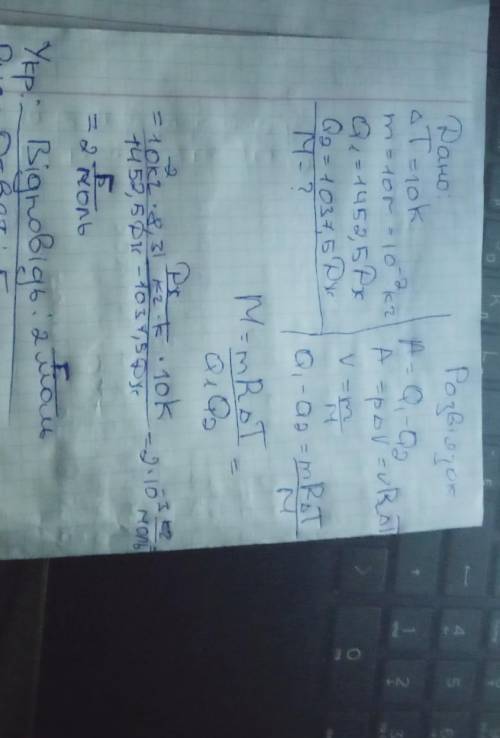 Дано:
ΔT = 10K
m = 10г = 10⁻² кг
Q1 = 1452,5 Дж
Q2 = 1037,5 Дж
M = ?
Розв'язок
A = Q1 - Q2
A = pΔV = νRΔT
ν = m/M
Q1 - Q2 = mRΔT/M
M = mRΔT/Q1Q2 =
= 10⁻² кг · 8,31 Дж/кг·K · 10K / 1452,5 Дж - 1037,5 Дж = 2·10⁻³ кг/моль
= 2 г/моль
Укр: Відповідь: 2 г/моль